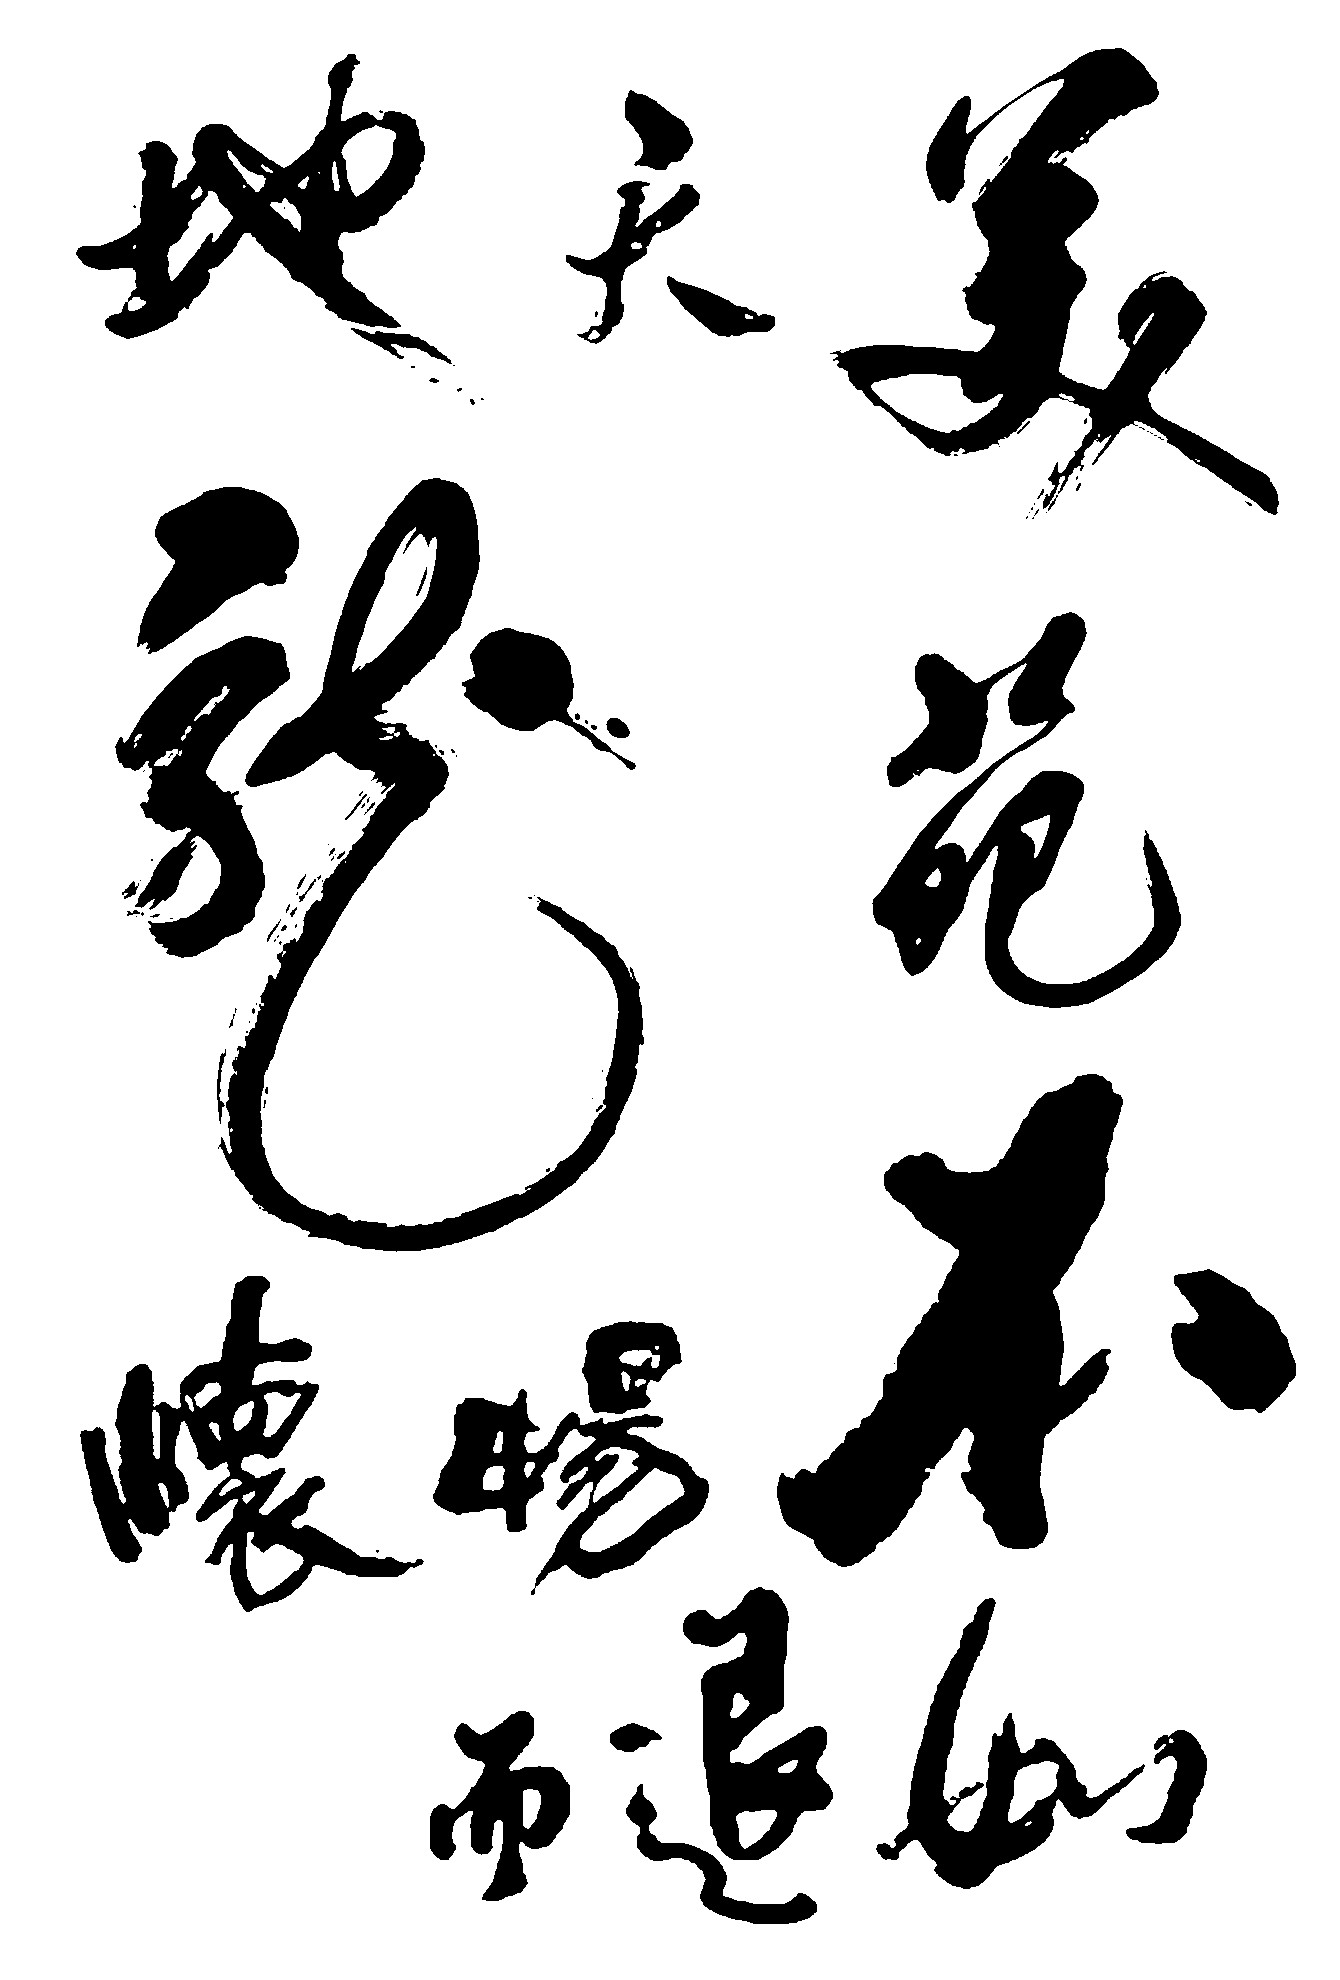 美苑不如
天地
龍
暢懷
退而